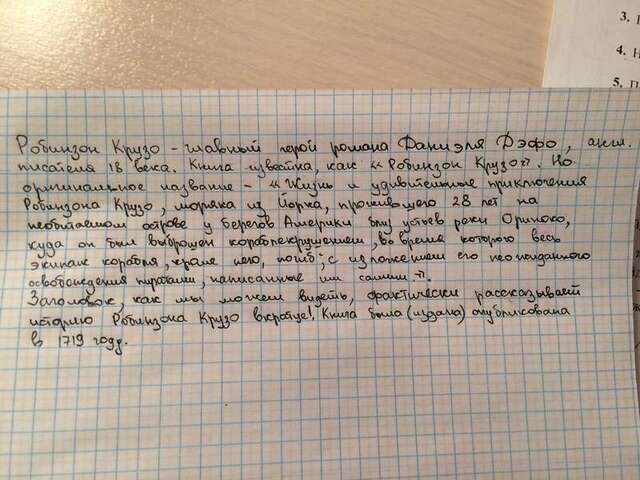 Робинзон Крузо - главный герой романа Даниэля Дэфо, англ.
писателя 18 века. Книга извесна, как "Робинзон Крузо". Но
оригинальное название - "Жизнь и удивительные приключения
Робинзона Крузо, моряка из Йорка, прожившего 28 лет на
необитаемом острове у берегов Америки близ устьев реки Ориноко,
куда он был выброшен кораблекрушением, во время которого весь
экипаж корабля, кроме него, погиб; с изложением его неожиданного
освобождения пиратами, написанные им самим".
Заголовок, как мы можем видеть, фактически рассказывает
историю Робинзона Крузо вкратце! Книга была (издана) опубликована
в 1719 году.
3.
4.
5.